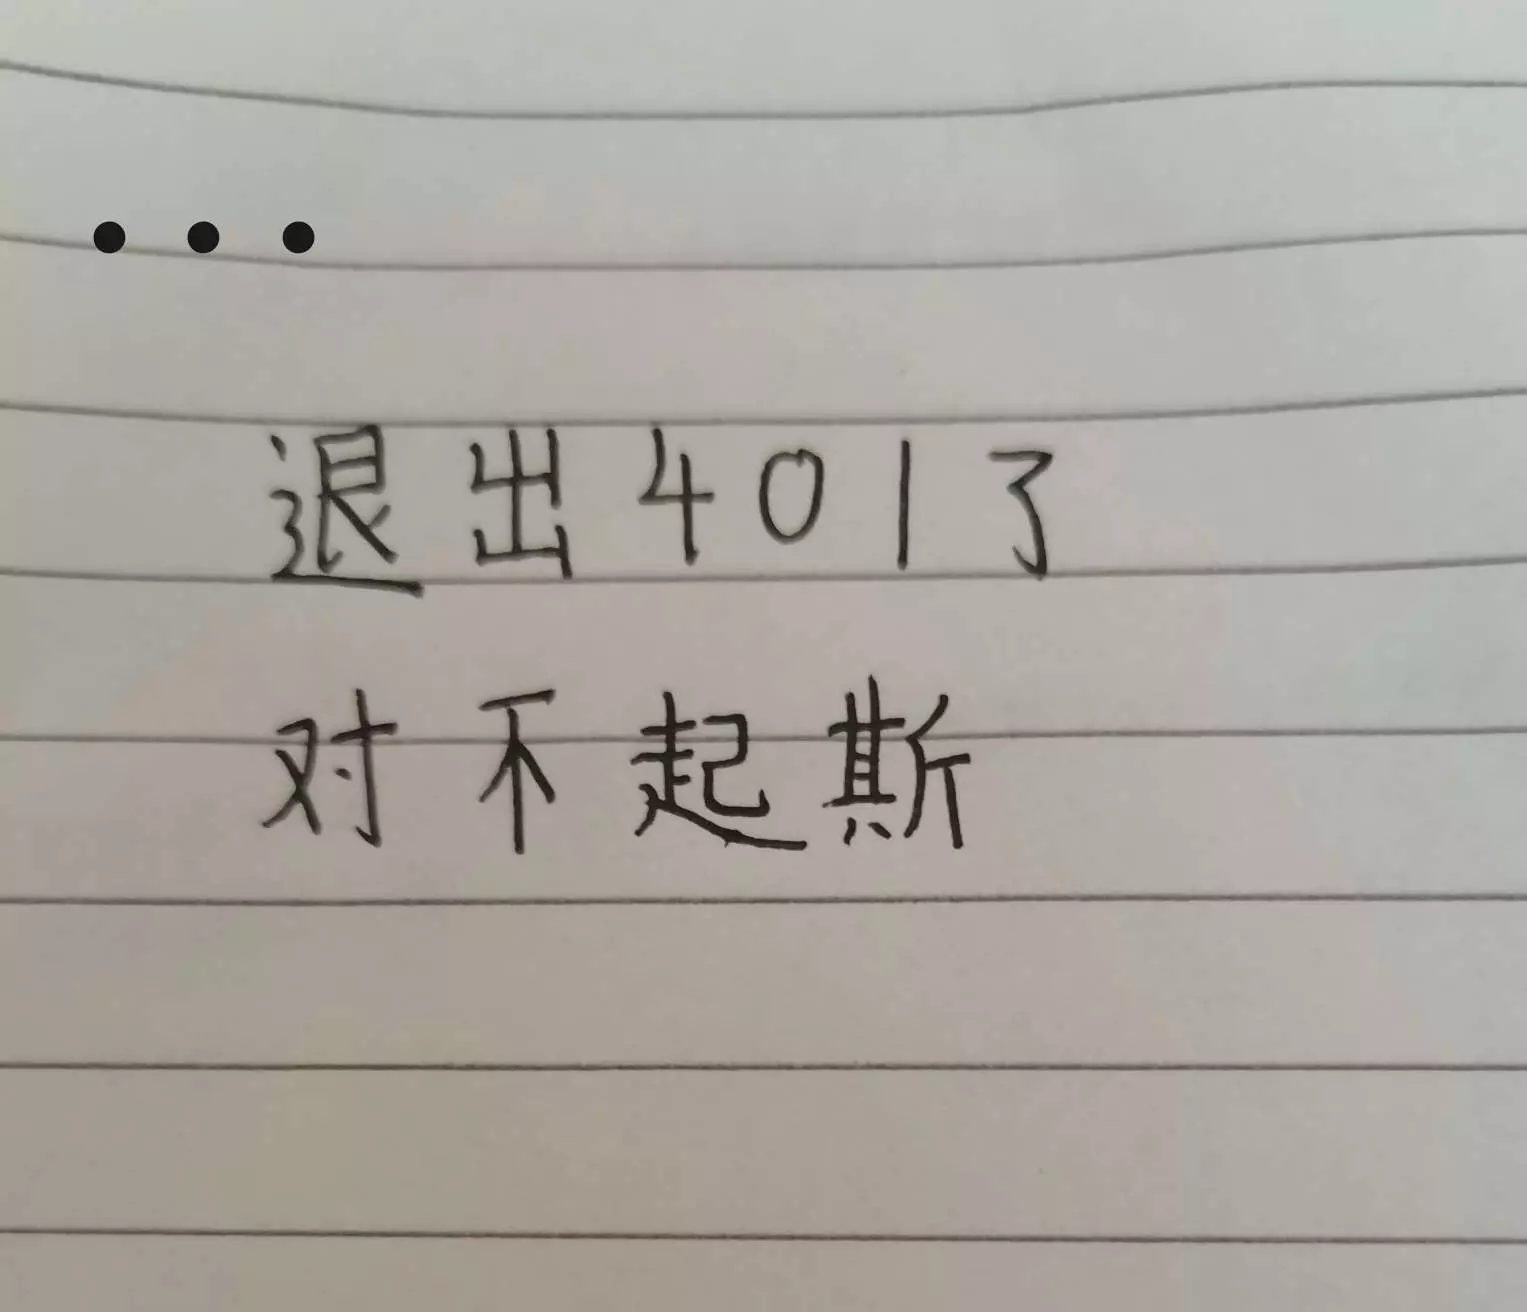 ...
退出401了
对不起斯